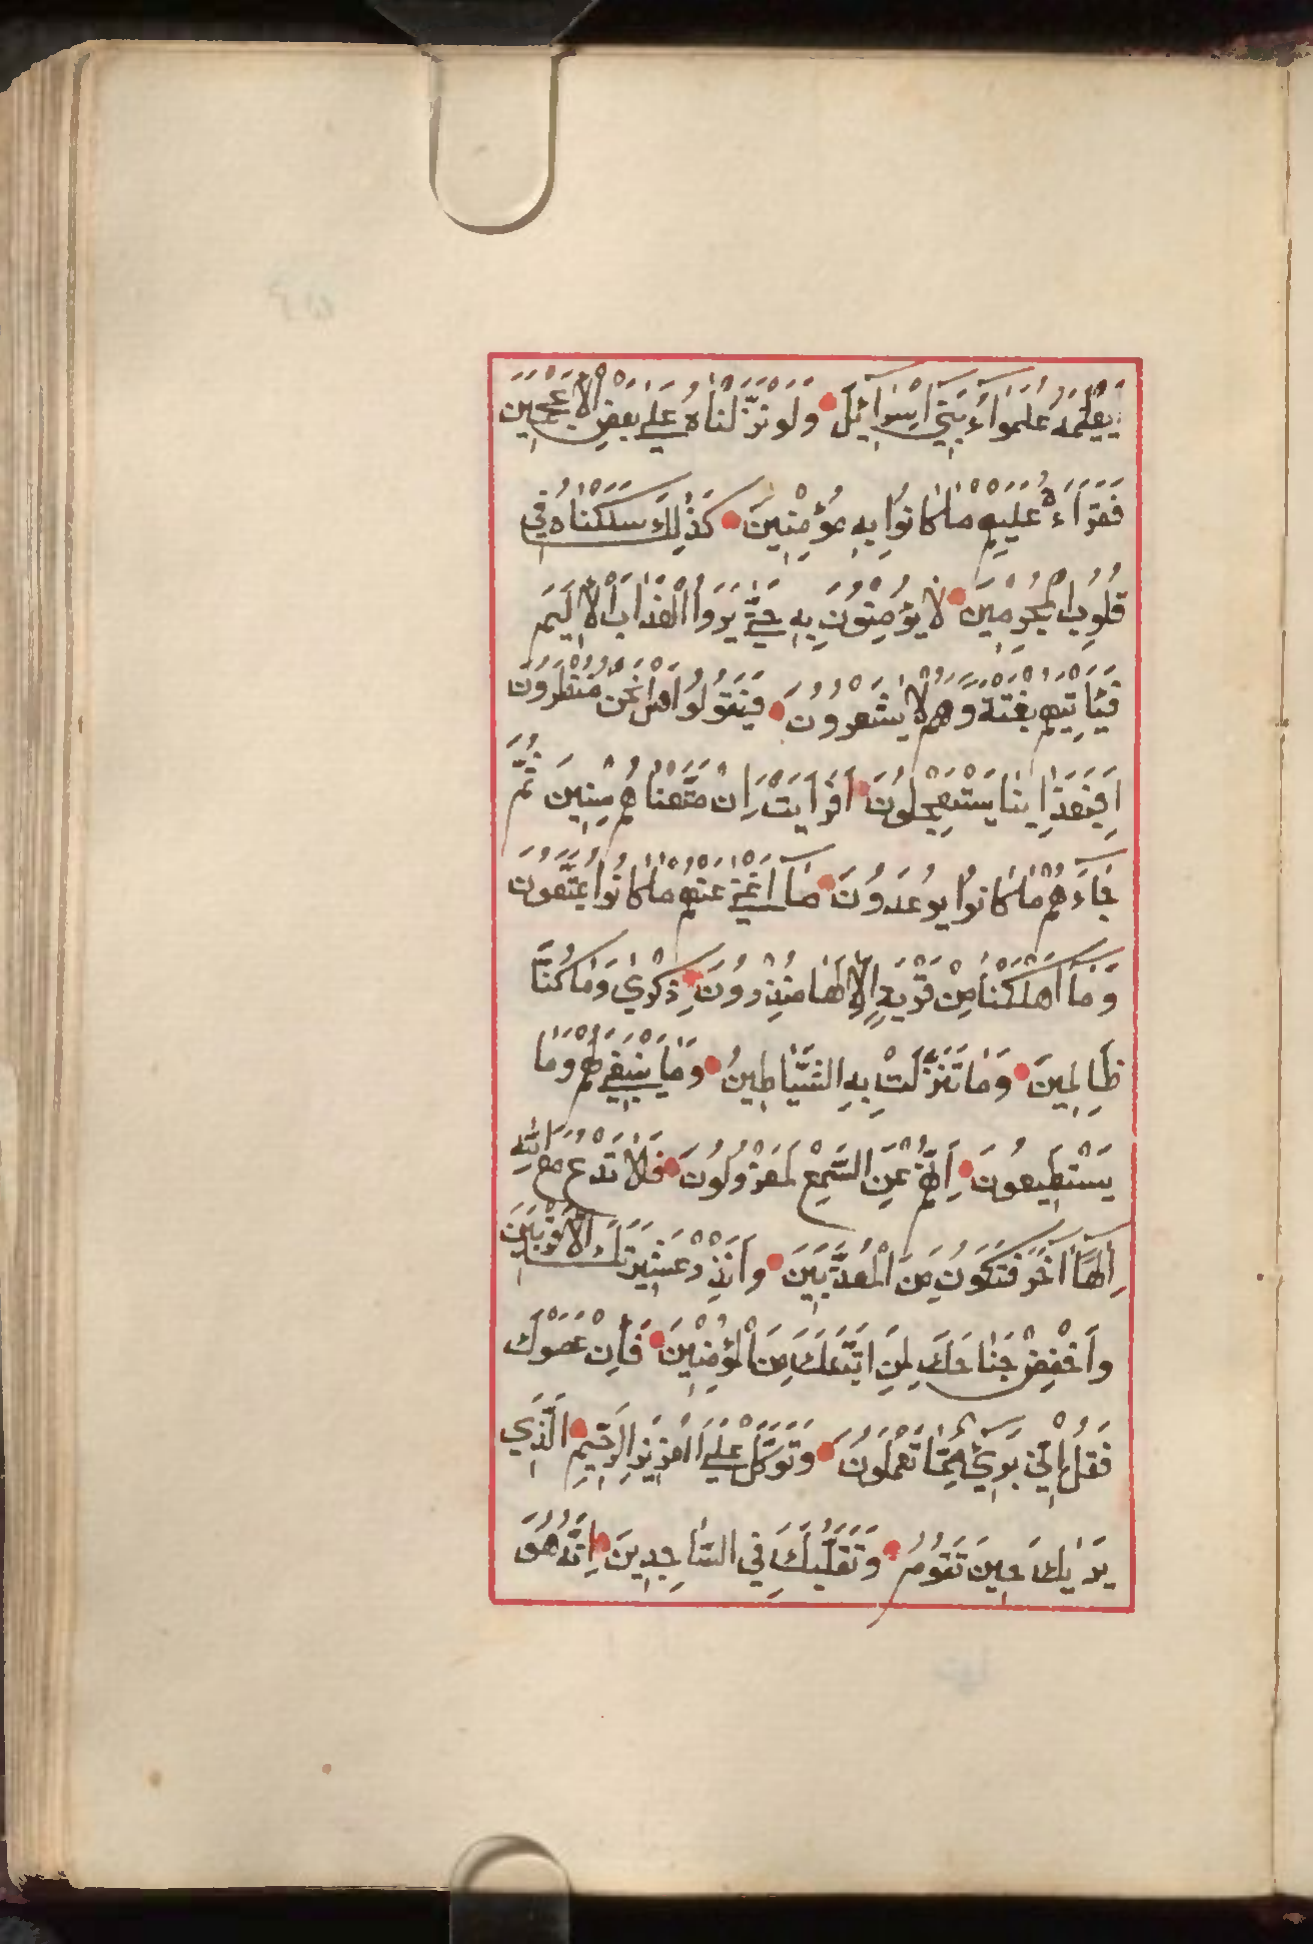 يَعْلَمَهُ عُلَمٰوءُا بَنِي اِسْرَائِلَ وَلَوْ نَزَّلْنَاهُ عَلَى بَعْضِ الْاَعْجَمِينَ
فَقَرَاَهُ عَلَيْهِمْ مَا كَانُوا بِهِ مُؤْمِنِينَ كَذٰلِكَ سَلَكْنَاهُ فِي
قُلُوبِ الْمُجْرِمِينَ لَا يُؤْمِنُونَ بِهِ حَتَّى يَرَوُا الْعَذَابَ الْاَلِيمَ
فَيَاْتِيَهُمْ بَغْتَةً وَهُمْ لَا يَشْعُرُونَ فَيَقُولُوا هَلْ نَحْنُ مُنْظَرُونَ
اَفَبِعَذَابِنَا يَسْتَعْجِلُونَ اَفَرَاَيْتَ اِنْ مَتَّعْنَاهُمْ سِنِينَ ثُمَّ
جَاءَهُمْ مَا كَانُوا يُوعَدُونَ مَا اَغْنٰى عَنْهُمْ مَا كَانُوا يُمَتَّعُونَ
وَمَا اَهْلَكْنَا مِنْ قَرْيَةٍ اِلَّا لَهَا مُنْذِرُونَ ذِكْرٰى وَمَا كُنَّا
ظَالِمِينَ وَمَا تَنَزَّلَتْ بِهِ الشَّيَاطِينُ وَمَا يَنْبَغِي لَهُمْ وَمَا
يَسْتَطِيعُونَ اِنَّهُمْ عَنِ السَّمْعِ لَمَعْزُولُونَ فَلَا تَدْعُ مَعَ اللّٰهِ
اِلٰهًا اٰخَرَ فَتَكُونَ مِنَ الْمُعَذَّبِينَ وَاَنْذِرْ عَشِيرَتَكَ الْاَقْرَبِينَ
وَاخْفِضْ جَنَاحَكَ لِمَنِ اتَّبَعَكَ مِنَ الْمُؤْمِنِينَ فَاِنْ عَصَوْكَ
فَقُلْ اِنِّي بَرِيءٌ مِمَّا تَعْمَلُونَ وَتَوَكَّلْ عَلَى الْعَزِيزِ الرَّحِيمِ الَّذِي
يَرٰيكَ حِينَ تَقُومُ وَتَقَلُّبَكَ فِي السَّاجِدِينَ اِنَّهُ هُوَ